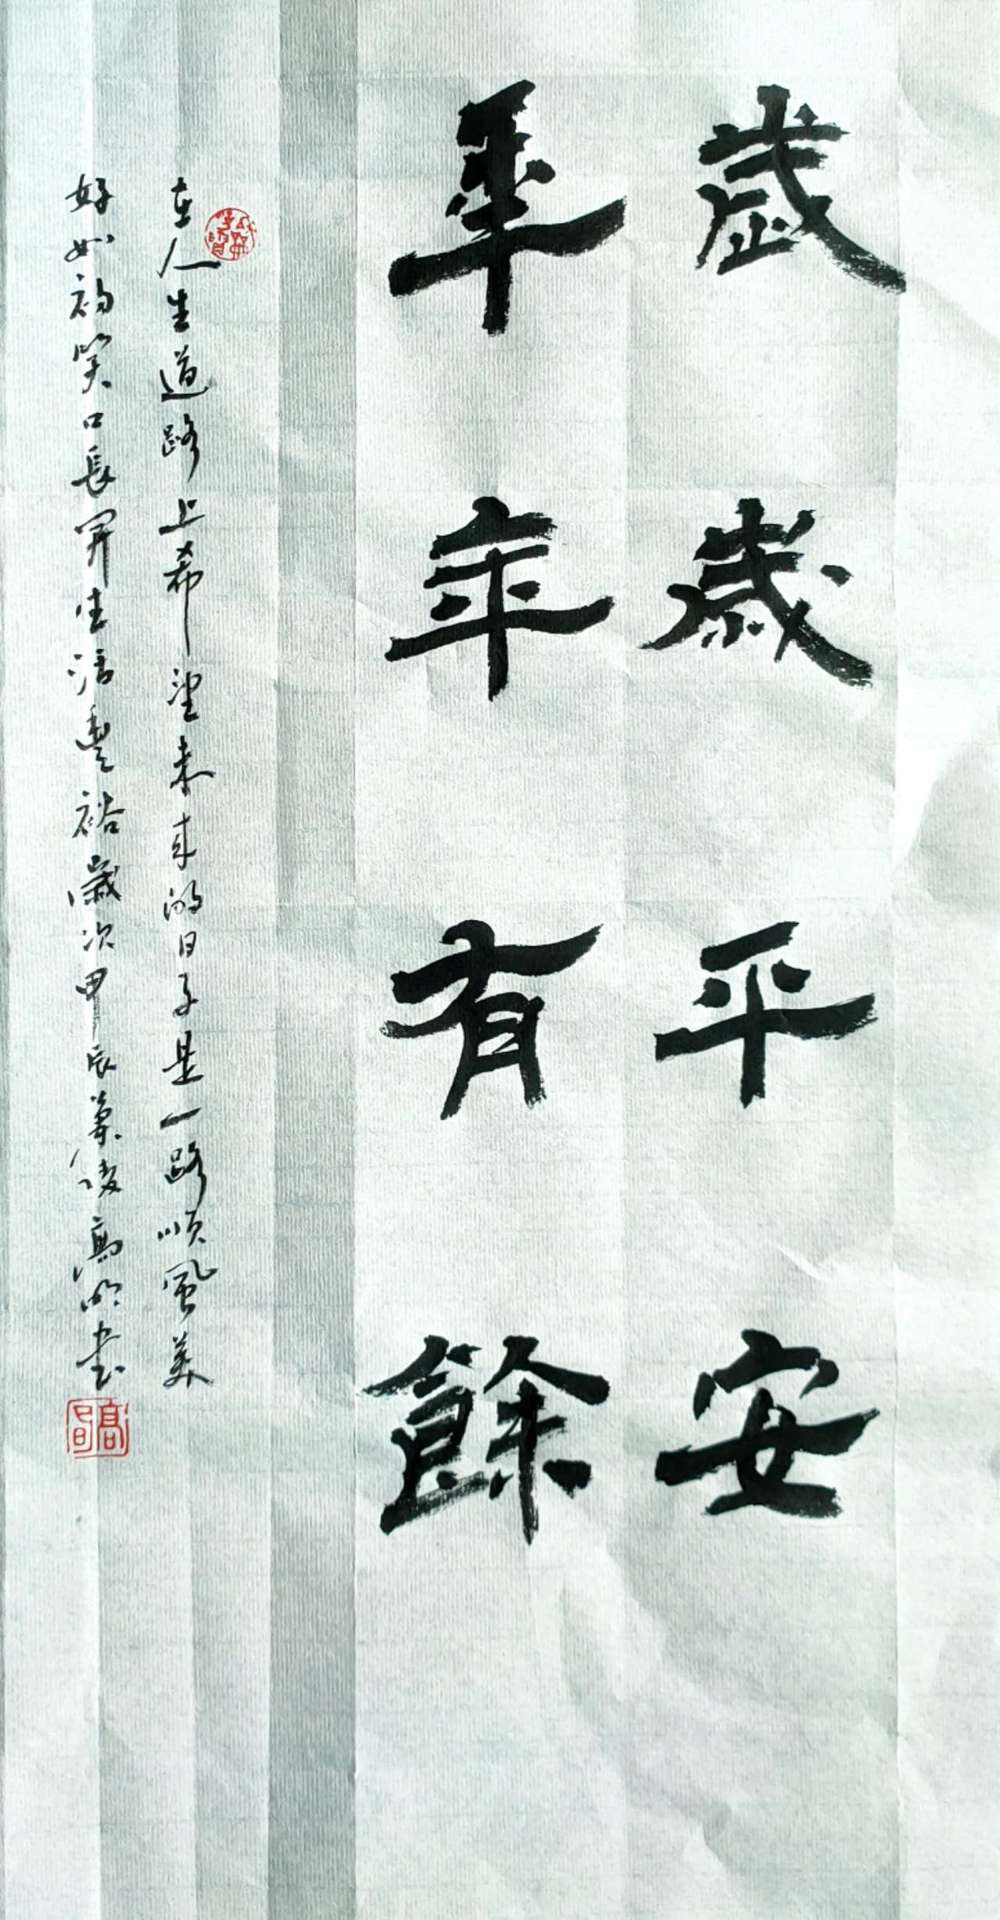 歲歲平安
年年有餘
在人生道路上希望未来的日子是一路順風美
好如初笑口長開生活豐裕歲次甲辰高明书